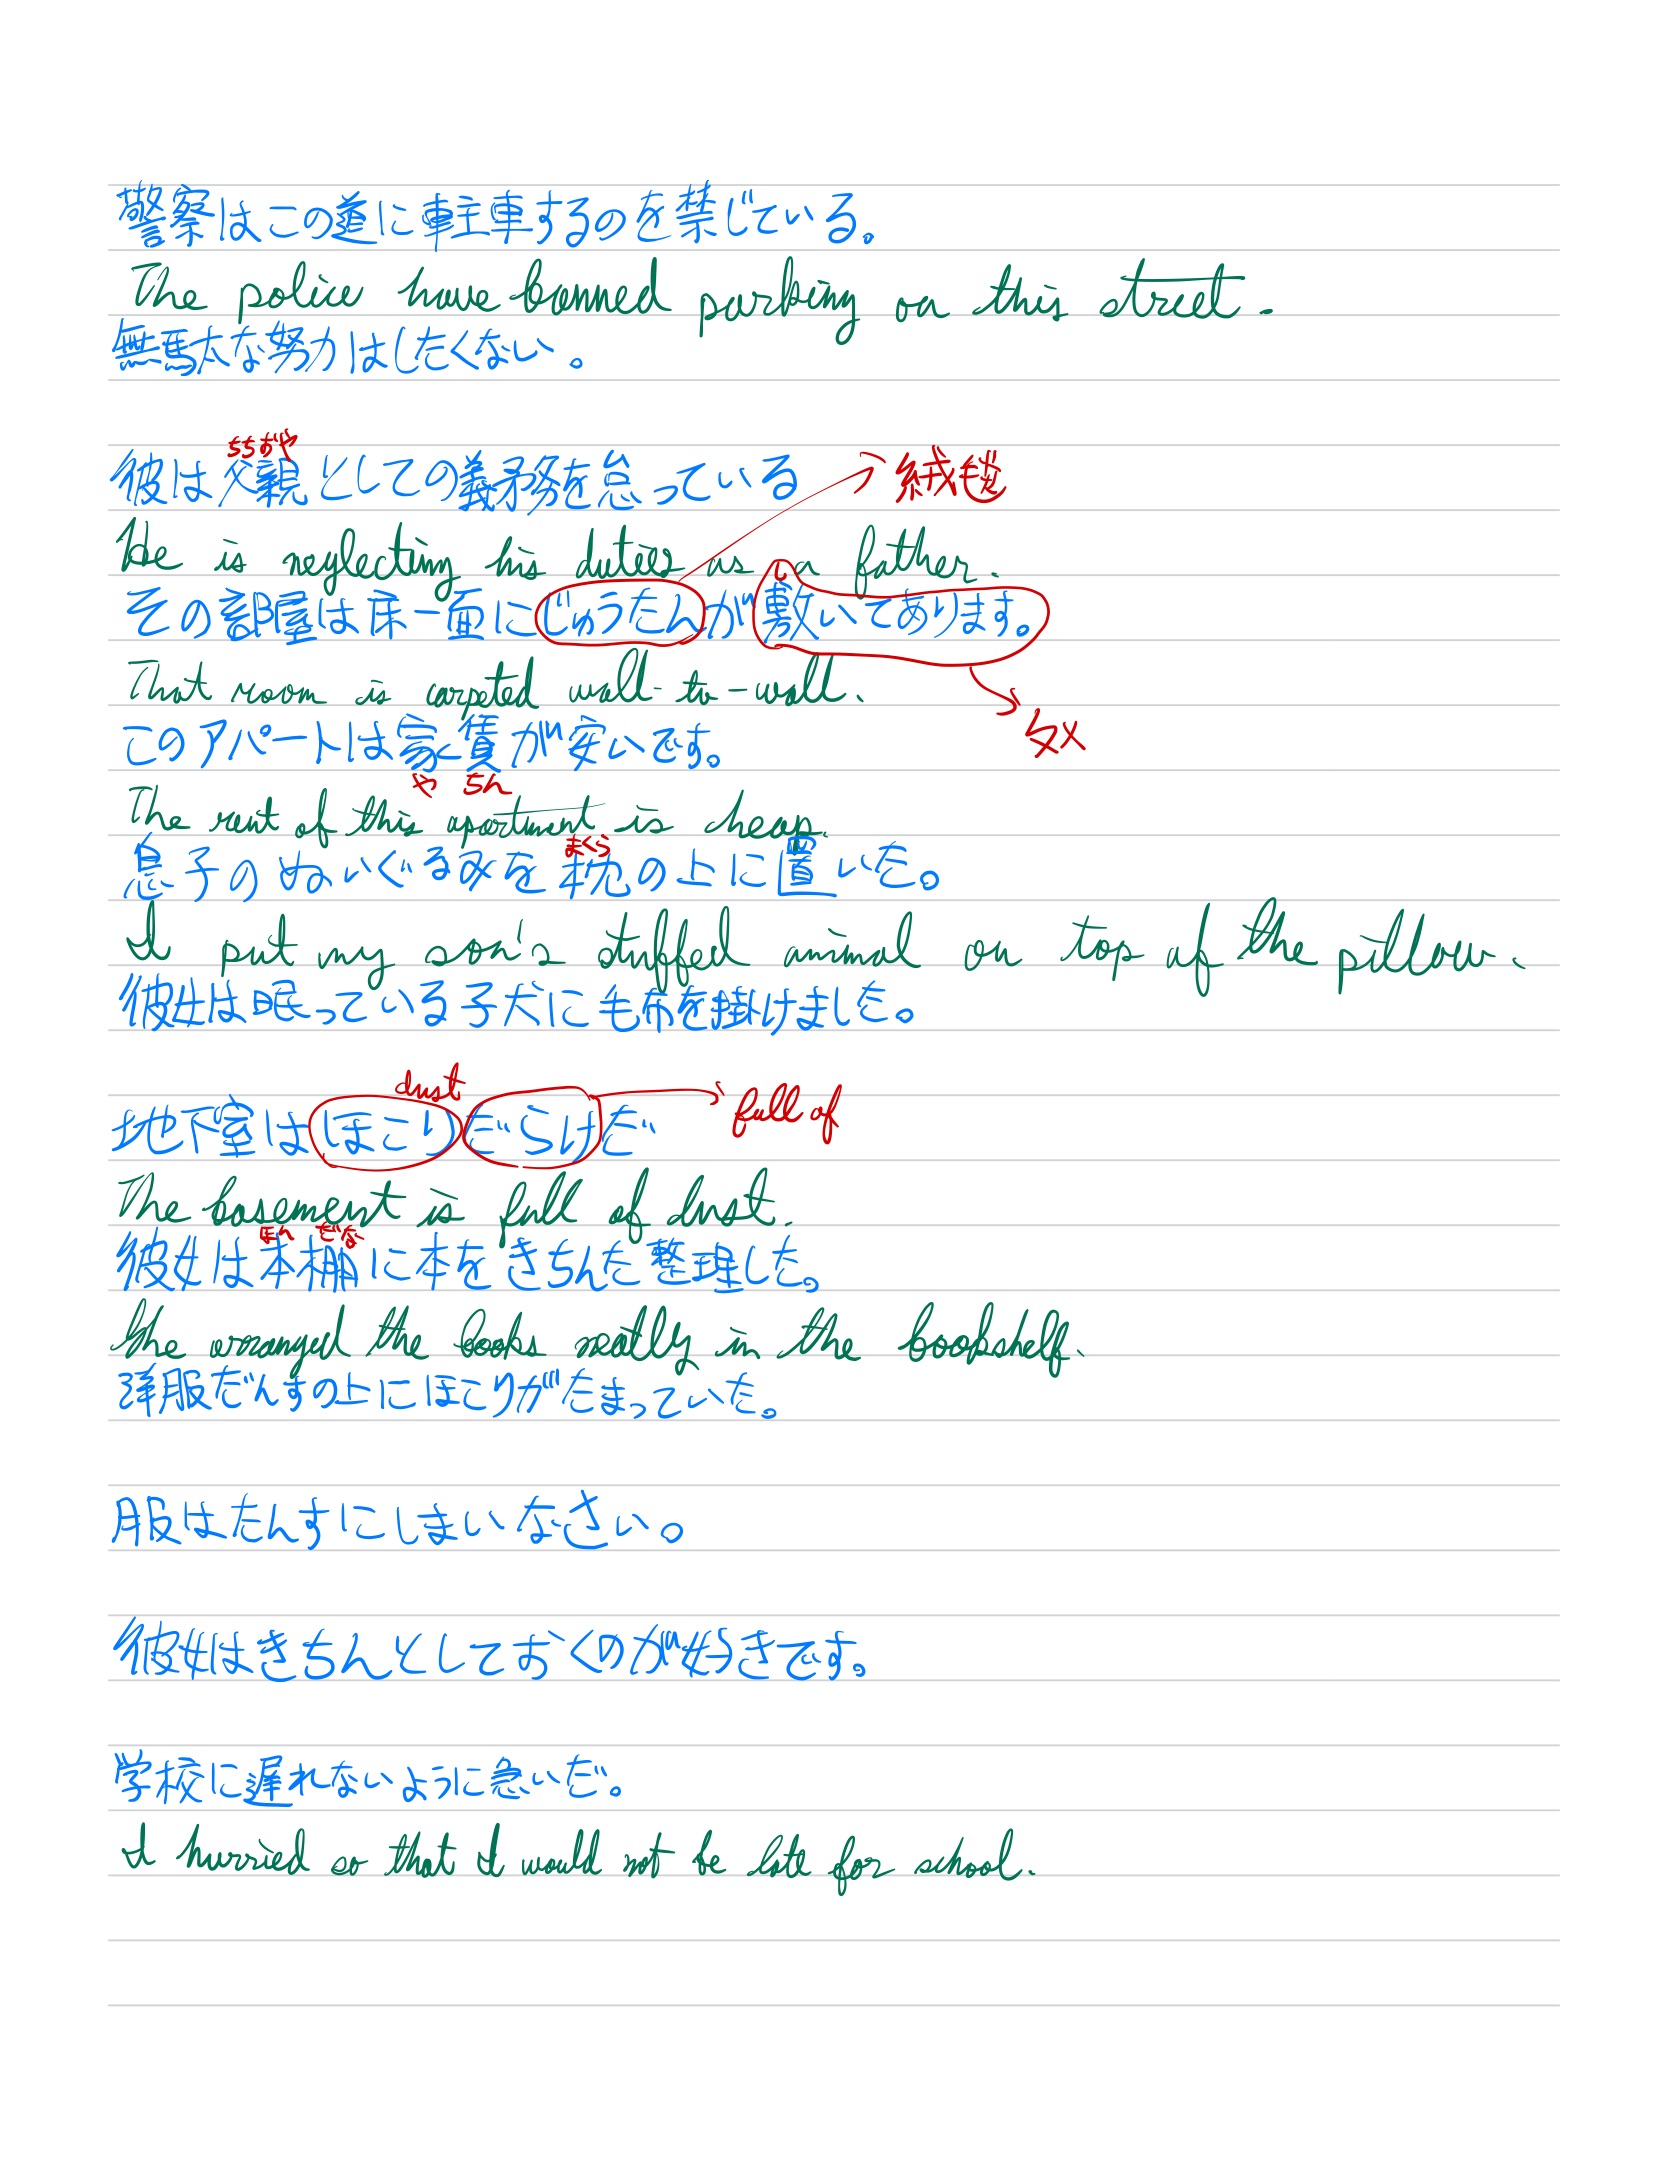 警察はこの道に駐車するのを禁じている。
The police have banned parking on this street.
無駄な努力はしたくない。
ちちおや
彼は父親としての義務を怠っている
絨毯
He is neglecting his duties as a father.
し
その部屋は床一面にじゅうたんが敷いてあります。
That room is carpeted wall-to-wall.
このアパートは家賃が安いです。
や ちん
The rent of this apartment is cheap.
まくら
息子のぬいぐるみを枕の上に置いた。
I put my son's stuffed animal on top of the pillow.
彼女は眠っている子犬に毛布を掛けました。
dust
full of
地下室はほこりだらけだ
The basement is full of dust.
ほん だな
彼女は本棚に本をきちんた整理した。
She arranged the books neatly in the bookshelf.
洋服だんすの上にほこりがたまっていた。
服はたんすにしまいなさい。
彼女はきちんとしておくのが好きです。
学校に遅れないように急いだ。
I hurried so that I would not be late for school.